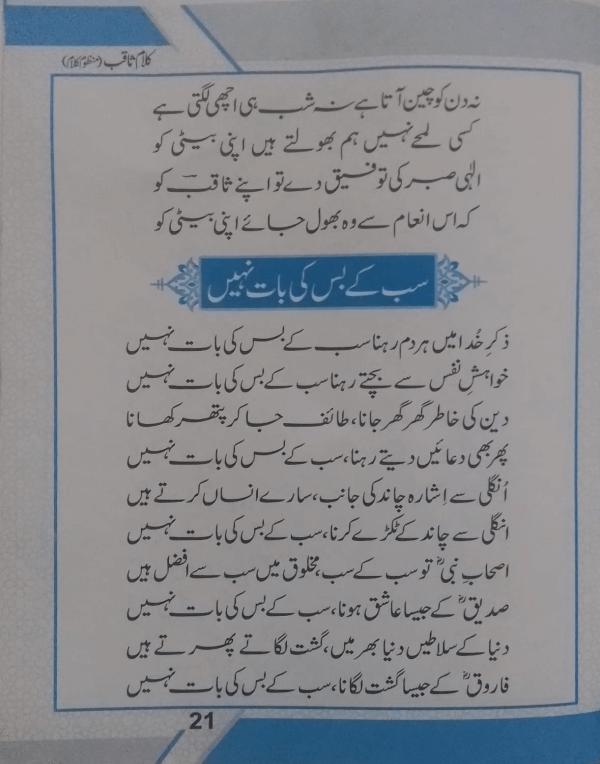 کلام ثاقب (منظوم کلام)
نہ دن کو چین آتا ہے نہ شب ہی اچھی لگتی ہے
کسی لمحے نہیں ہم بھولتے ہیں اپنی بیٹی کو
الٰہی صبر کی توفیق دے تو اپنے ثاقبؔ کو
کہ اس انعام سے وہ بھول جائے اپنی بیٹی کو
سب کے بس کی بات نہیں
ذکرِ خُدا میں ہر دم رہنا سب کے بس کی بات نہیں
خواہشِ نفس سے بچتے رہنا سب کے بس کی بات نہیں
دین کی خاطر گھر گھر جانا، طائف جا کر پتھر کھانا
پھر بھی دعائیں دیتے رہنا، سب کے بس کی بات نہیں
اُنگلی سے اِشارہ چاند کی جانب، سارے انساں کرتے ہیں
انگلی سے چاند کے ٹکڑے کرنا، سب کے بس کی بات نہیں
اصحابِ نبیؓ تو سب کے سب، مخلوق میں سب سے افضل ہیں
صدیقؓ کے جیسا عاشق ہونا، سب کے بس کی بات نہیں
دنیا کے سلاطیں دنیا بھر میں، گشت لگاتے پھرتے ہیں
فاروقؓ کے جیسا گشت لگانا، سب کے بس کی بات نہیں
21